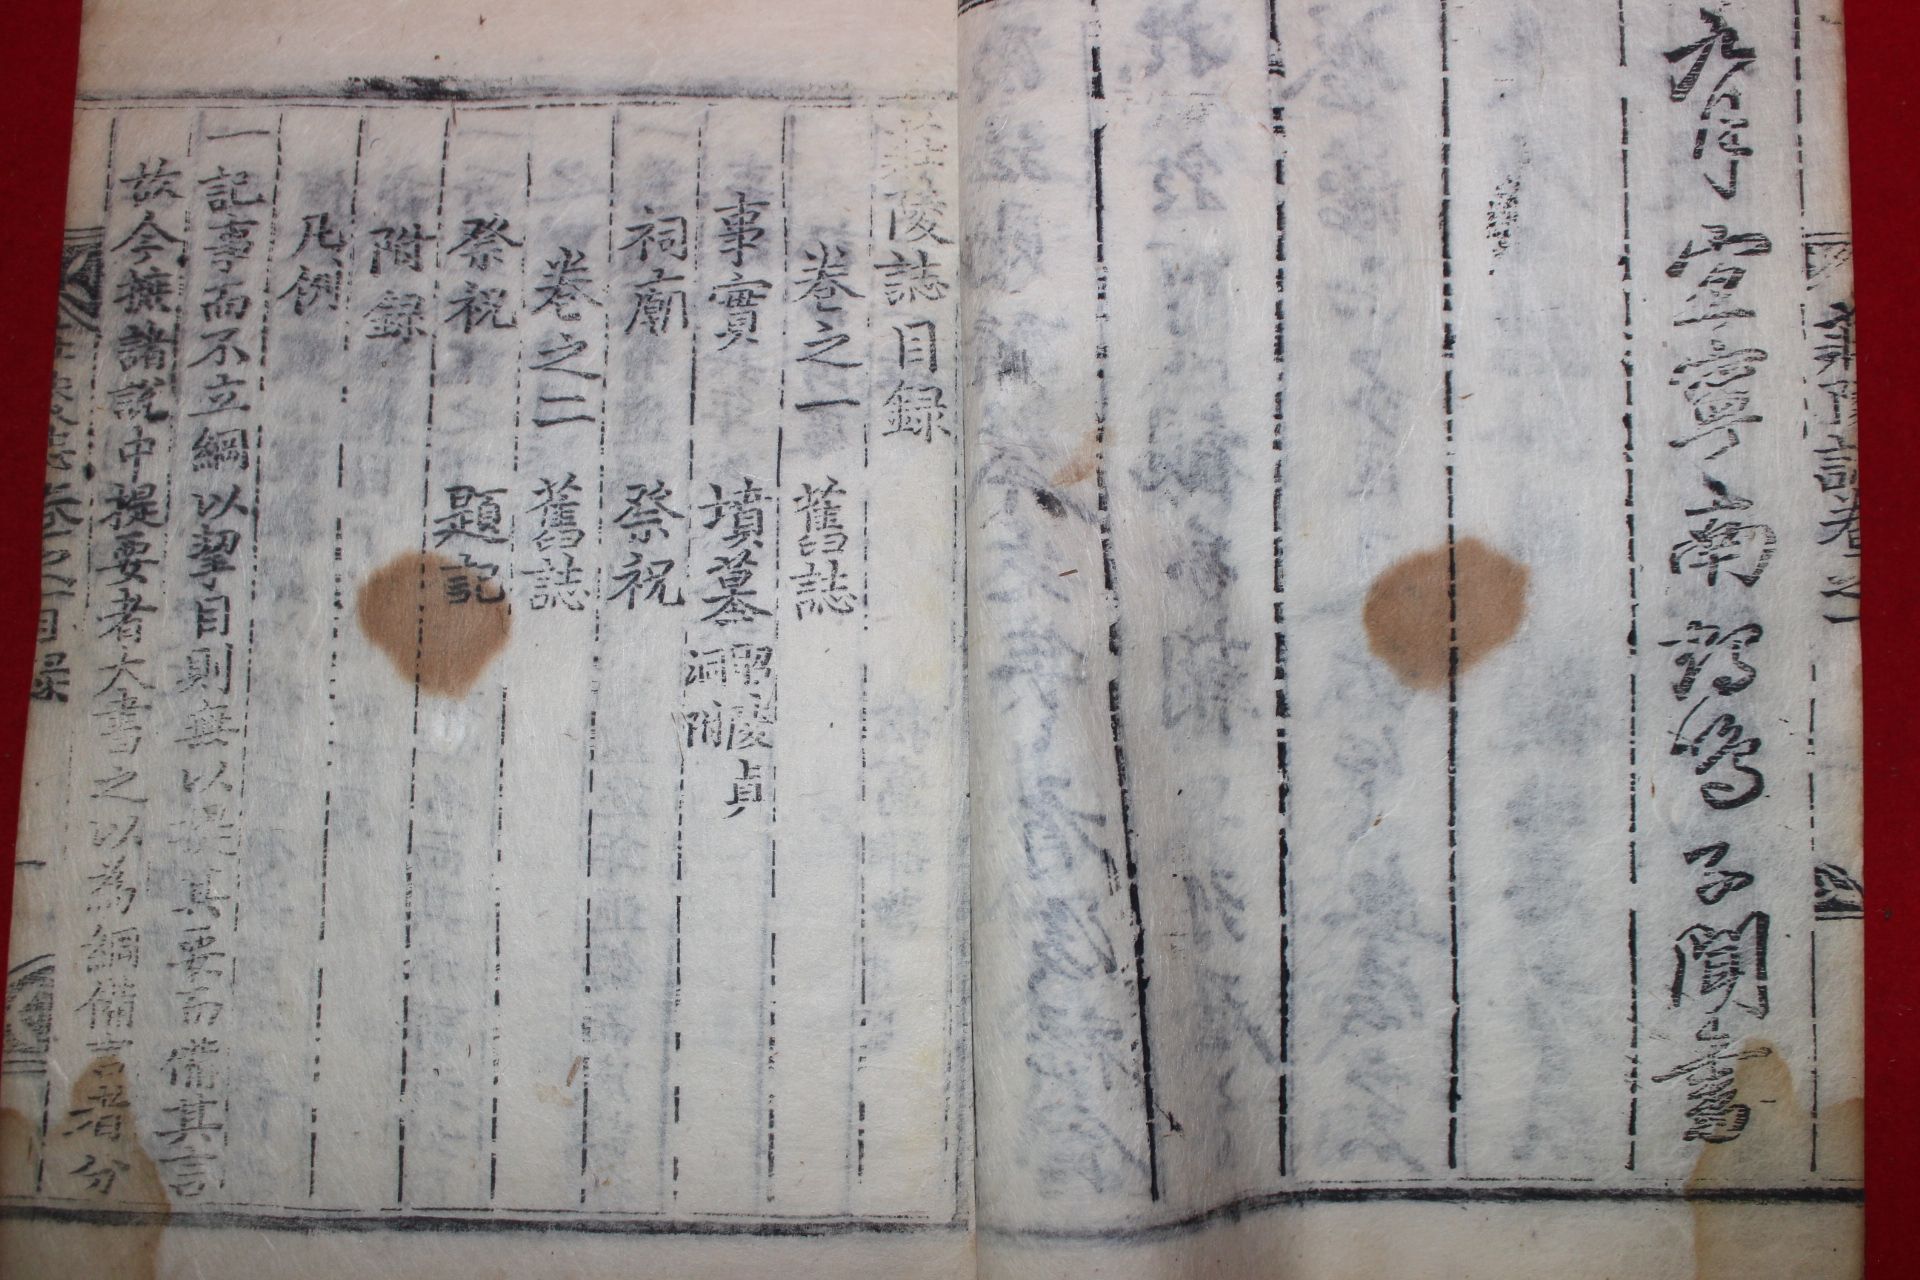 九月 宜寧南 子聞書
華陵誌卷之一
陵誌目錄
卷之一 舊誌
事實 墳墓 昭陵貞洞附
祠廟 祭祝
卷之二 舊誌
祭祝 題記
附錄
凡例
一記事而不立綱以挈目則無以提其要而備其言
故今摭諸說中提要者大書之以為綱備言者分
卷之一目錄
一